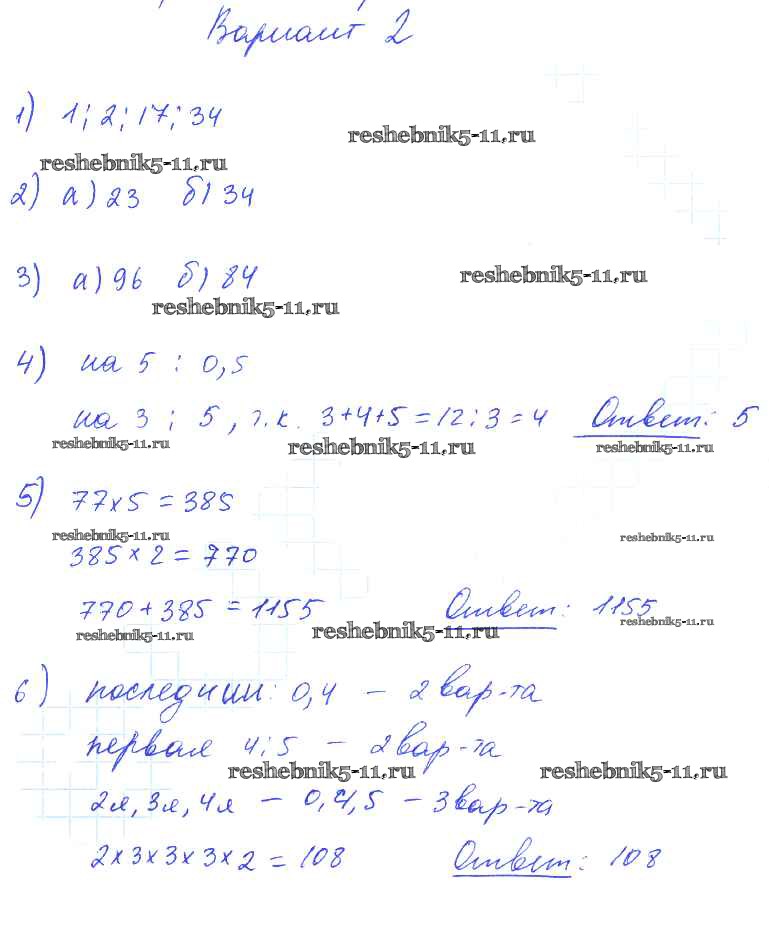 Вариант 2
1) 1; 2; 17; 34
reshebnik5-11.ru
reshebnik5-11.ru
2) а) 23 б) 34
3) а) 96 б) 84
reshebnik5-11.ru
reshebnik5-11.ru
4) на 5 : 0,5
на 3 ; 5, т.к. 3+4+5=12:3=4 Ответ: 5
reshebnik5-11.ru reshebnik5-11.ru reshebnik5-11.ru
5) 77×5=385
reshebnik5-11.ru reshebnik5-11.ru
385×2=770
770+385=1155 Ответ: 1155
reshebnik5-11.ru reshebnik5-11.ru reshebnik5-11.ru
6) последний: 0,4 – 2 вар-та
первая 4;5 – 2 вар-та
reshebnik5-11.ru reshebnik5-11.ru
2я, 3я, 4я – 0,4,5 – 3 вар-та
2×3×3×3×2=108 Ответ: 108